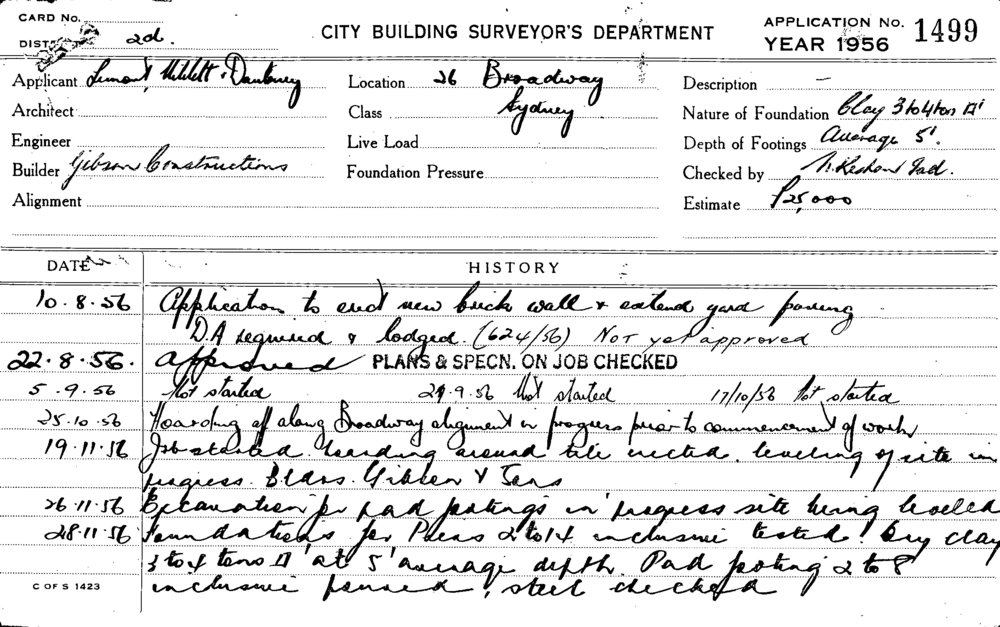 CARD No.
DIST 2d.
CITY BUILDING SURVEYOR'S DEPARTMENT
APPLICATION No. 1499
YEAR 1956
Applicant
Architect
Engineer
Builder Gibson Constructions
Alignment
Location 26 Broadway
Class Sydney
Live Load
Foundation Pressure
Description —
Nature of Foundation Clay 3 to 4 ton □'
Depth of Footings Average 5'.
Checked by
Estimate £25,000
DATE HISTORY
10.8.56 Application to erect new brick wall & extend yard paving
D.A required & lodged (624/56) Not yet approved
22.8.56. Approved PLANS & SPECN. ON JOB CHECKED
5.9.56 Not started 27.9.56 Not started 17/10/56 Not started
25.10.56 Hoarding off along Broadway alignment in progress prior to commencement of work
19.11.56 Job started hoarding around site erected. leveling of site in
progress. Bldrs. Gibson & Sons
26.11.56 Excavation for pad footings in progress site being leveled
28.11.56 Foundations for Piers 2 to 14 inclusive tested! Dry clay
3 to 4 tons □' at 5' average depth. Pad footing 2 to 8
inclusive poured, steel checked
C OF S 1423